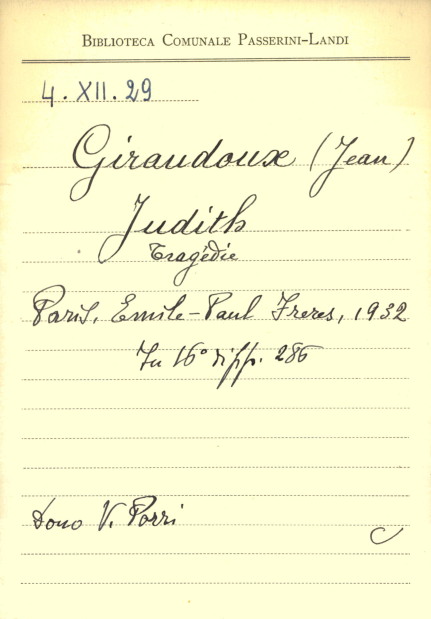 BIBLIOTECA COMUNALE PASSERINI-LANDI
4. XII. 29
Giraudoux (Jean)
Judith
Tragédie
Paris, Emile-Paul Freres, 1932
In 16° di pp. 286
Dono V. Porri
C